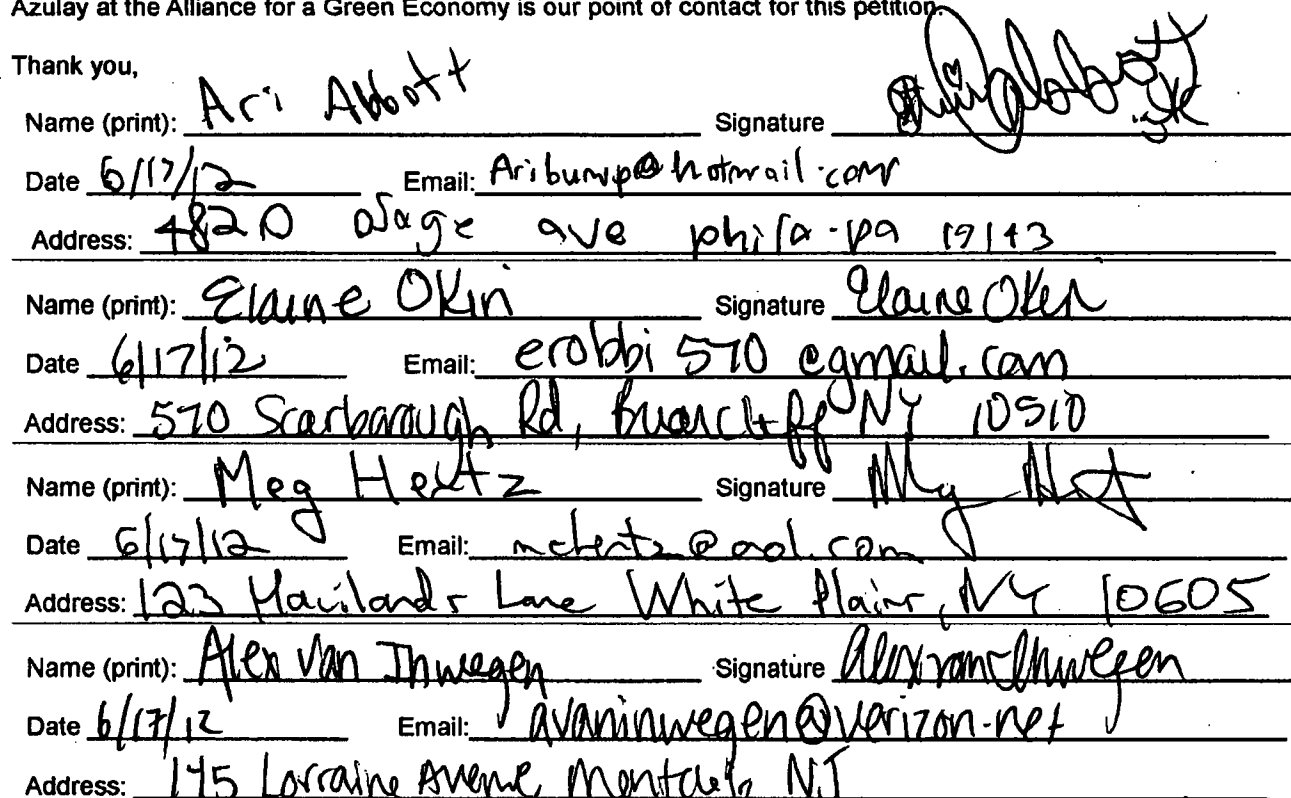 Azulay at the Alliance for a Green Economy is our point of contact for this petition.
Thank you,
Name (print): Ari Abbott Signature Abbott
Date 6/17/12 Email: Aribump@hotmail.com
Address: 4820 Osage ave phila-pa 19143
Name (print): Elaine Okin Signature Elaine Okin
Date 6/17/12 Email: erobbi570@gmail.com
Address: 570 Scarborough Rd, Briarcliff NY 10510
Name (print): Meg Hertz Signature
Date 6/17/12 Email: mchertz@aol.com
Address: 123 Havilands Lane White Plains, NY 10605
Name (print): Alex Van Inwegen Signature Alex van Inwegen
Date 6/17/12 Email: avaninwegen@verizon.net
Address: Lorraine Avenue Montclair NJ